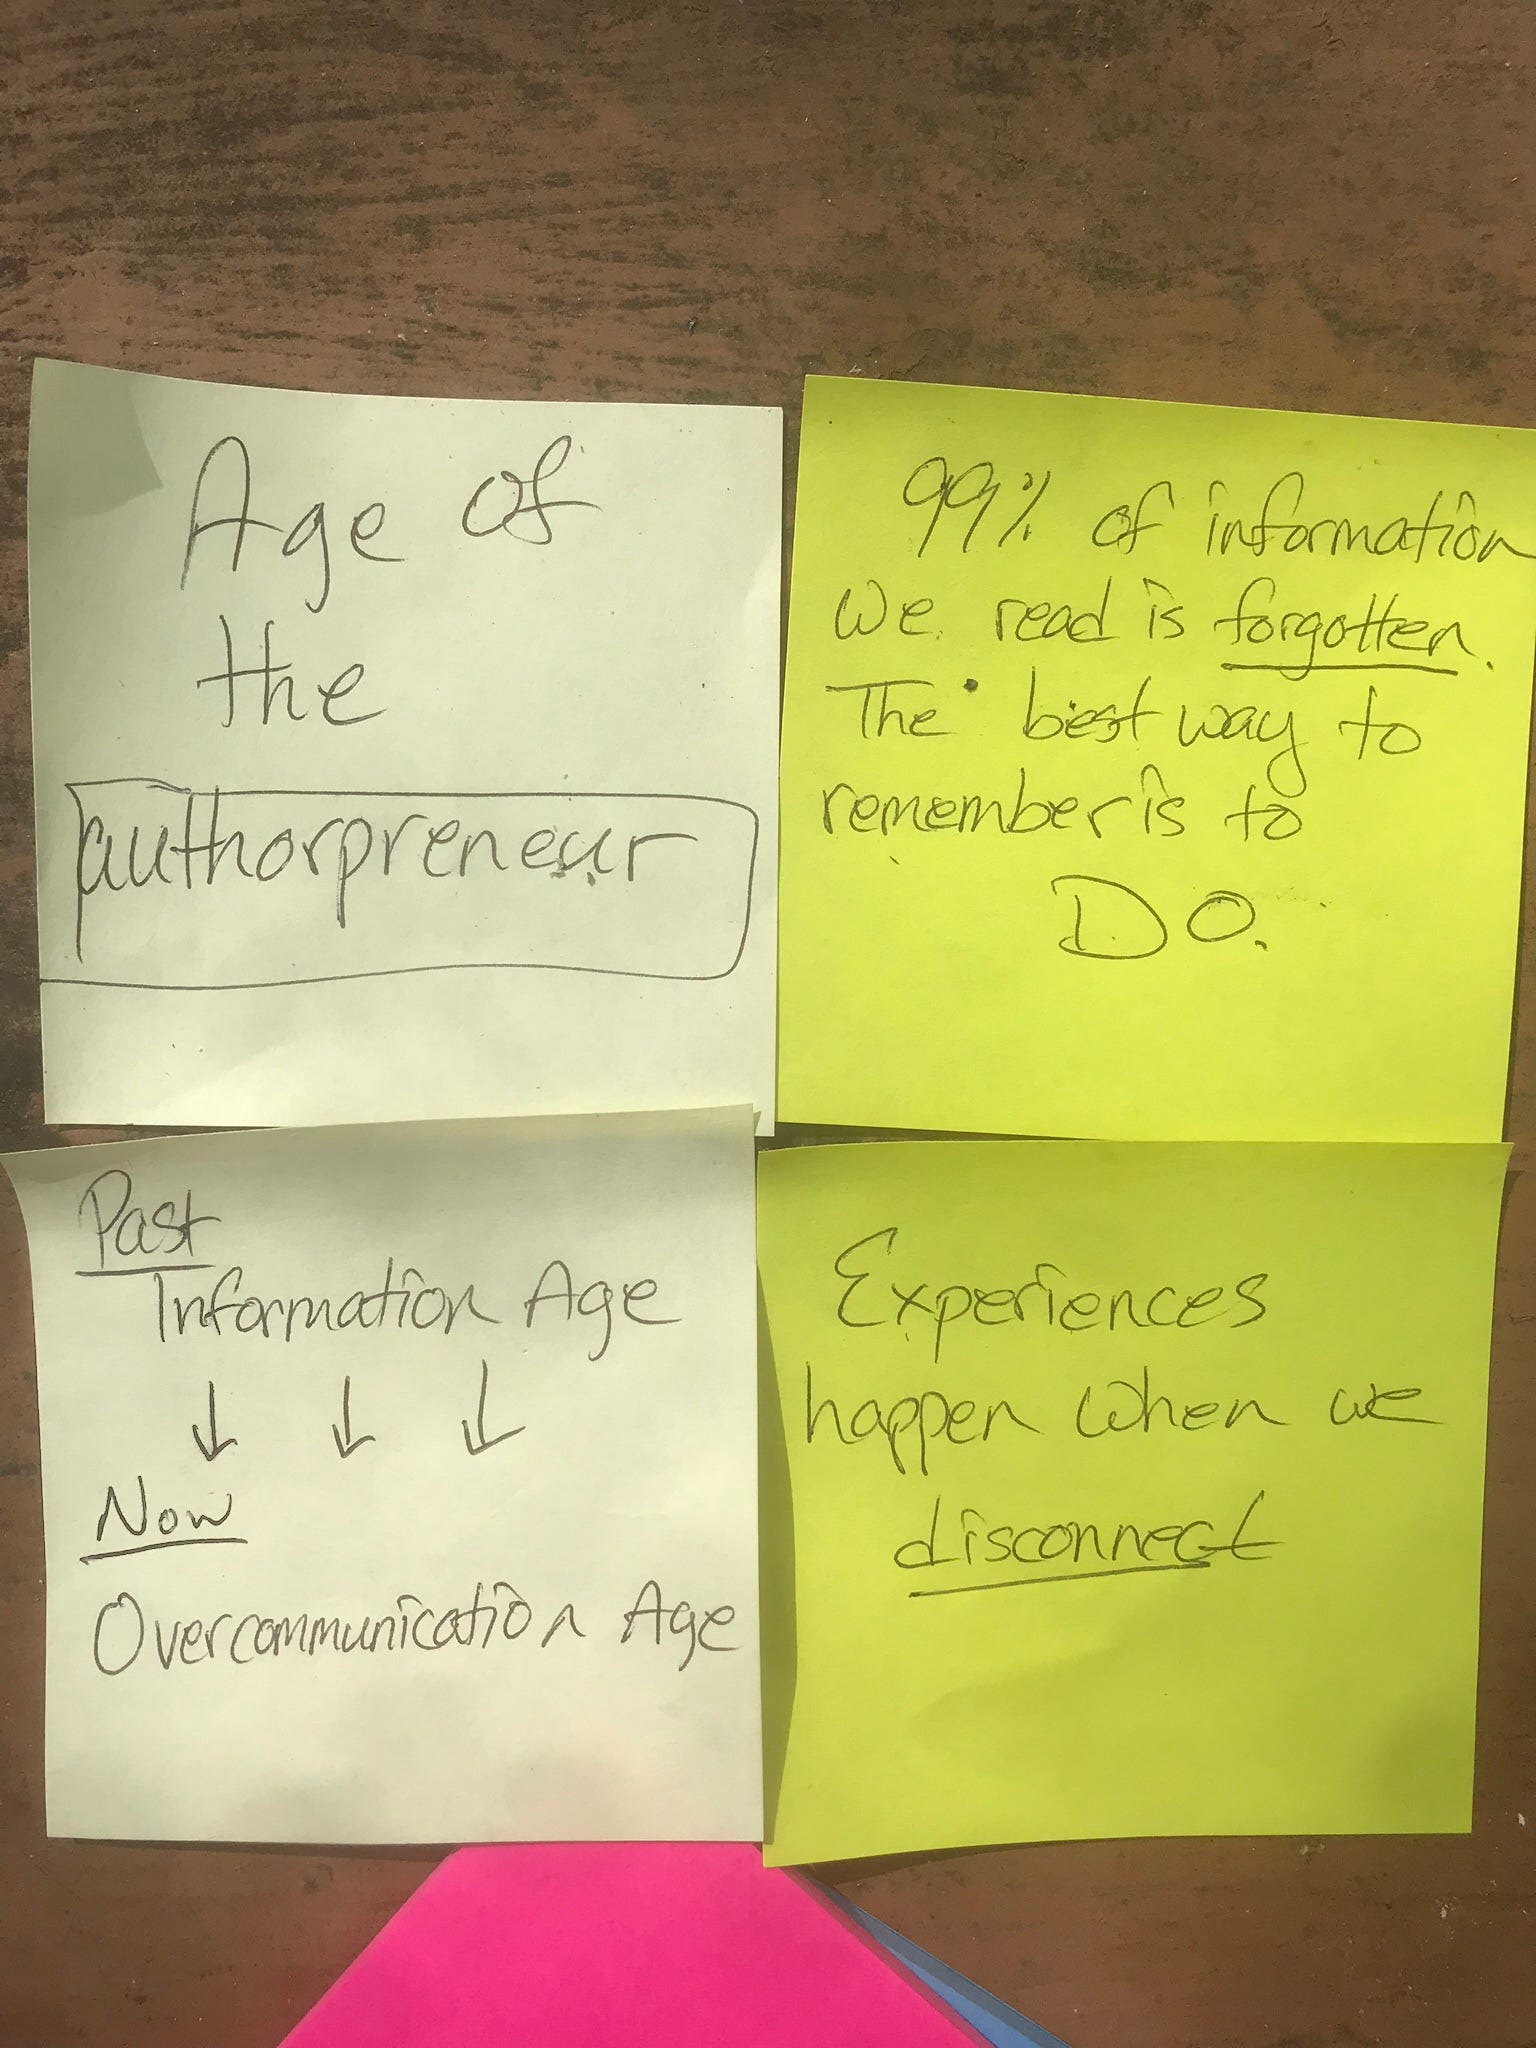 Age of
the
authorpreneur
99% of information
we read is forgotten.
The best way to
remember is to
DO.
Past
Information Age
↓ ↓ ↓
Now
Overcommunication Age
Experiences
happen when we
disconnect